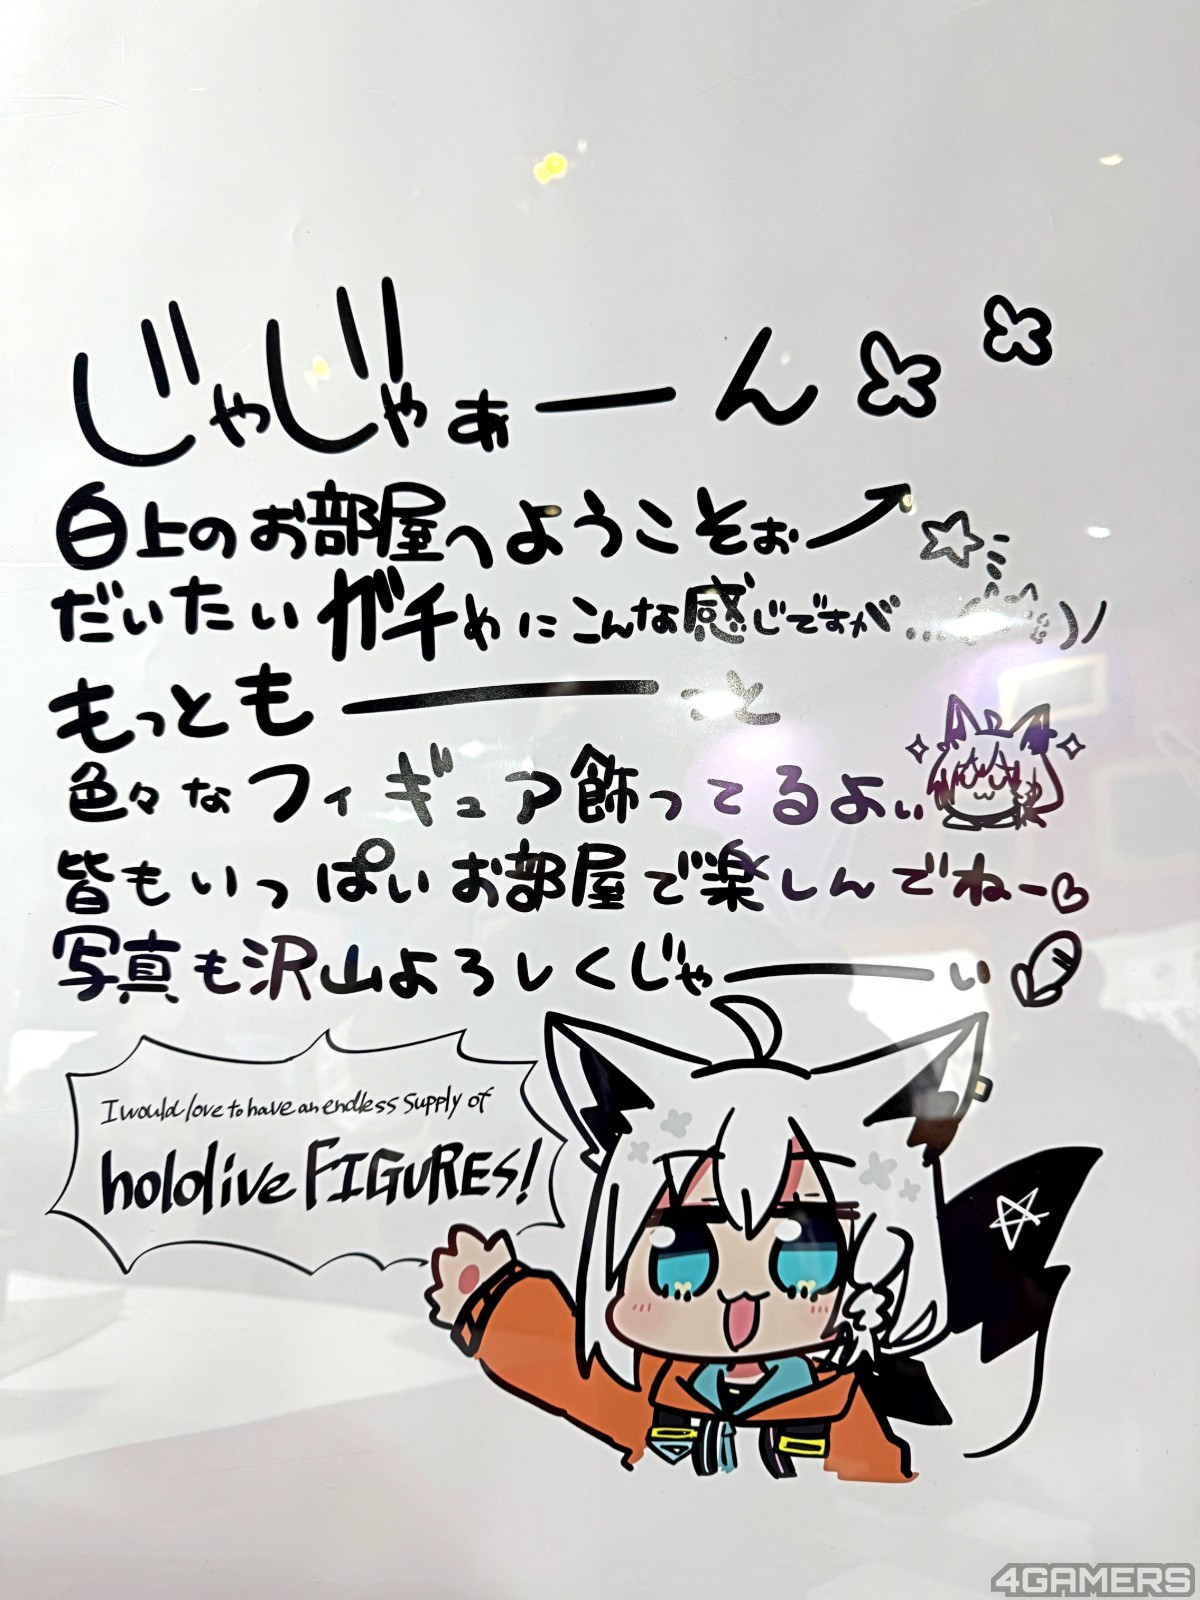 じゃじゃぁーん
白上のお部屋へようこそぉ
だいたいガチめにこんな感じですが…
もっともーっと
色々なフィギュア飾ってるよぃ
皆もいっぱいお部屋で楽しんでねー♡
写真も沢山よろしくじゃーい
I would love to have an endless supply of
hololive FIGURES!
4GAMERS